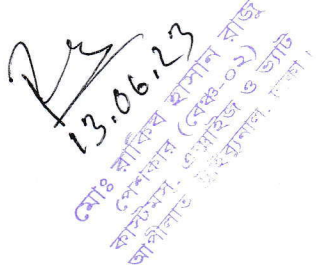 13.06.23
মোঃ রাকিব হাসান রাজু
পেশকার (বেঞ্চ-০২)
কাস্টমস, এক্সাইজ ও ভ্যাট
আপীলাত ট্রাইব্যুনাল, ঢাকা।